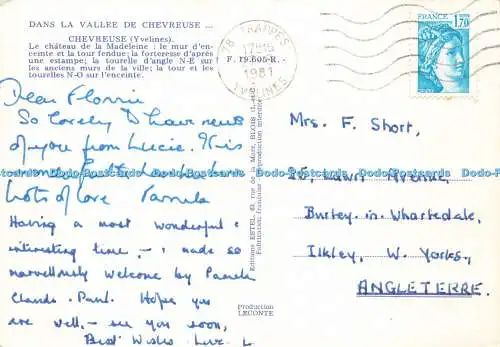 DANS LA VALLEE DE CHEVREUSE ...
CHEVREUSE (Yvelines).
Le château de la Madeleine : le mur d'en-
ceinte et la tour fendue; la forteresse d'après
une estampe; la tourelle d'angle N-E sur
les anciens murs de la ville; la tour et les
tourelles N-O sur l'enceinte.
F. 19.805-R.
78 TRAPPES
1981
YVELINES
FRANCE
1,70
Dear Florrie
So lovely to have news
of you from Lucie. It is
Lots of love Pamela
Having a most wonderful &
interesting time, - made so
marvellously welcome by Pamela
Claude - Paul. Hope you
are well, - see you soon,
Best Wishes
Mrs. F. Short,
Avenue,
Burley-in-Wharfedale,
Ilkley, W. Yorks,
ANGLETERRE.
Production
LECONTE